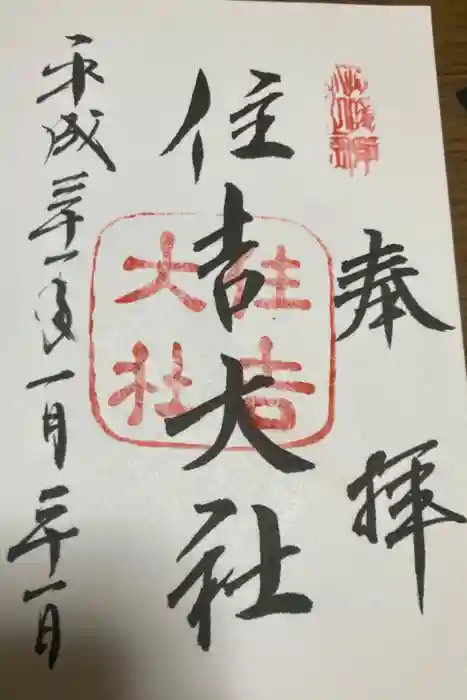 奉拝
住吉大社
住吉
大社
平成三十一年一月三十一日